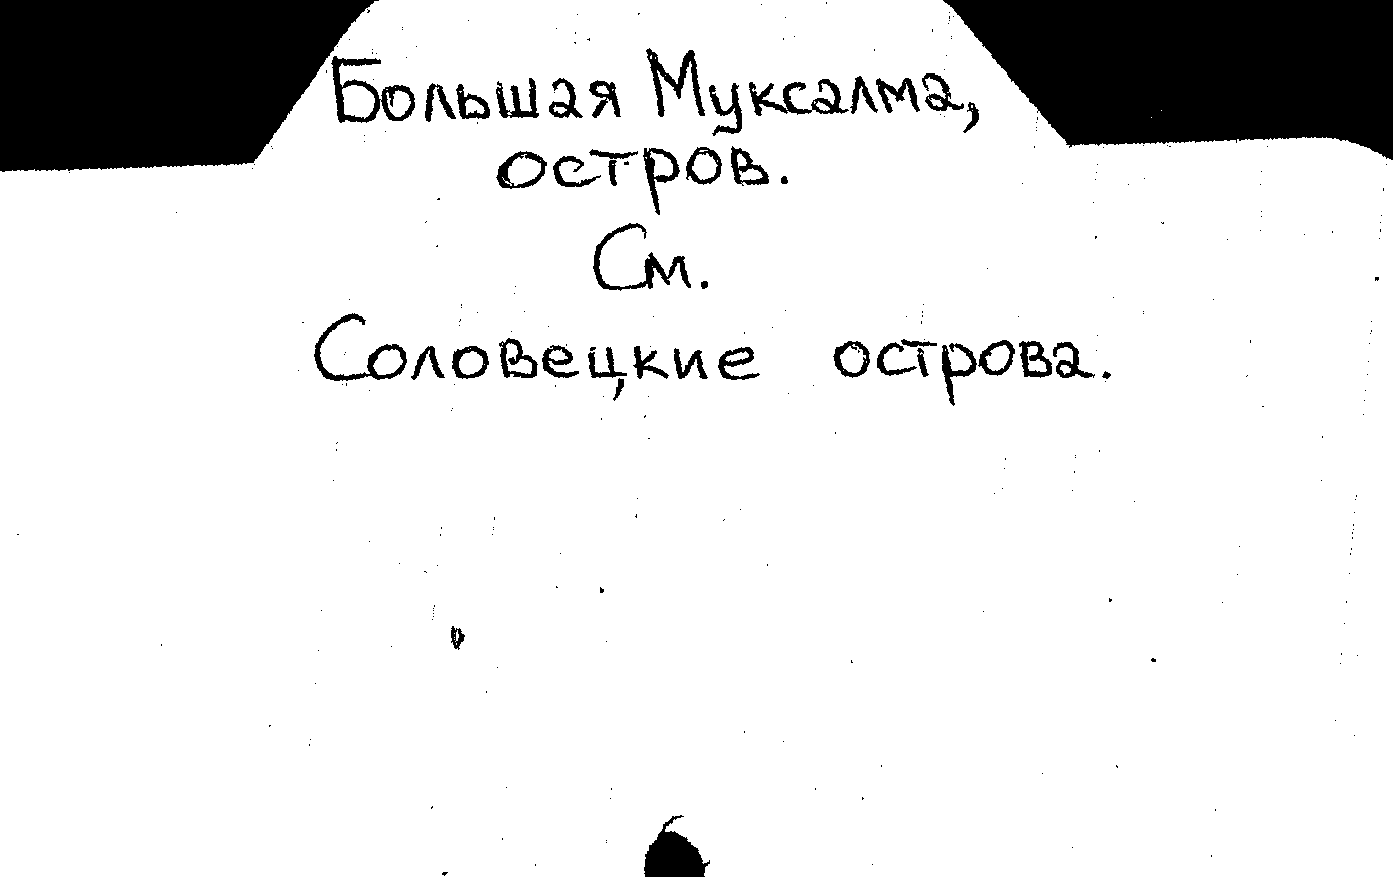 Большая Муксалма,
остров.
См.
Соловецкие острова.